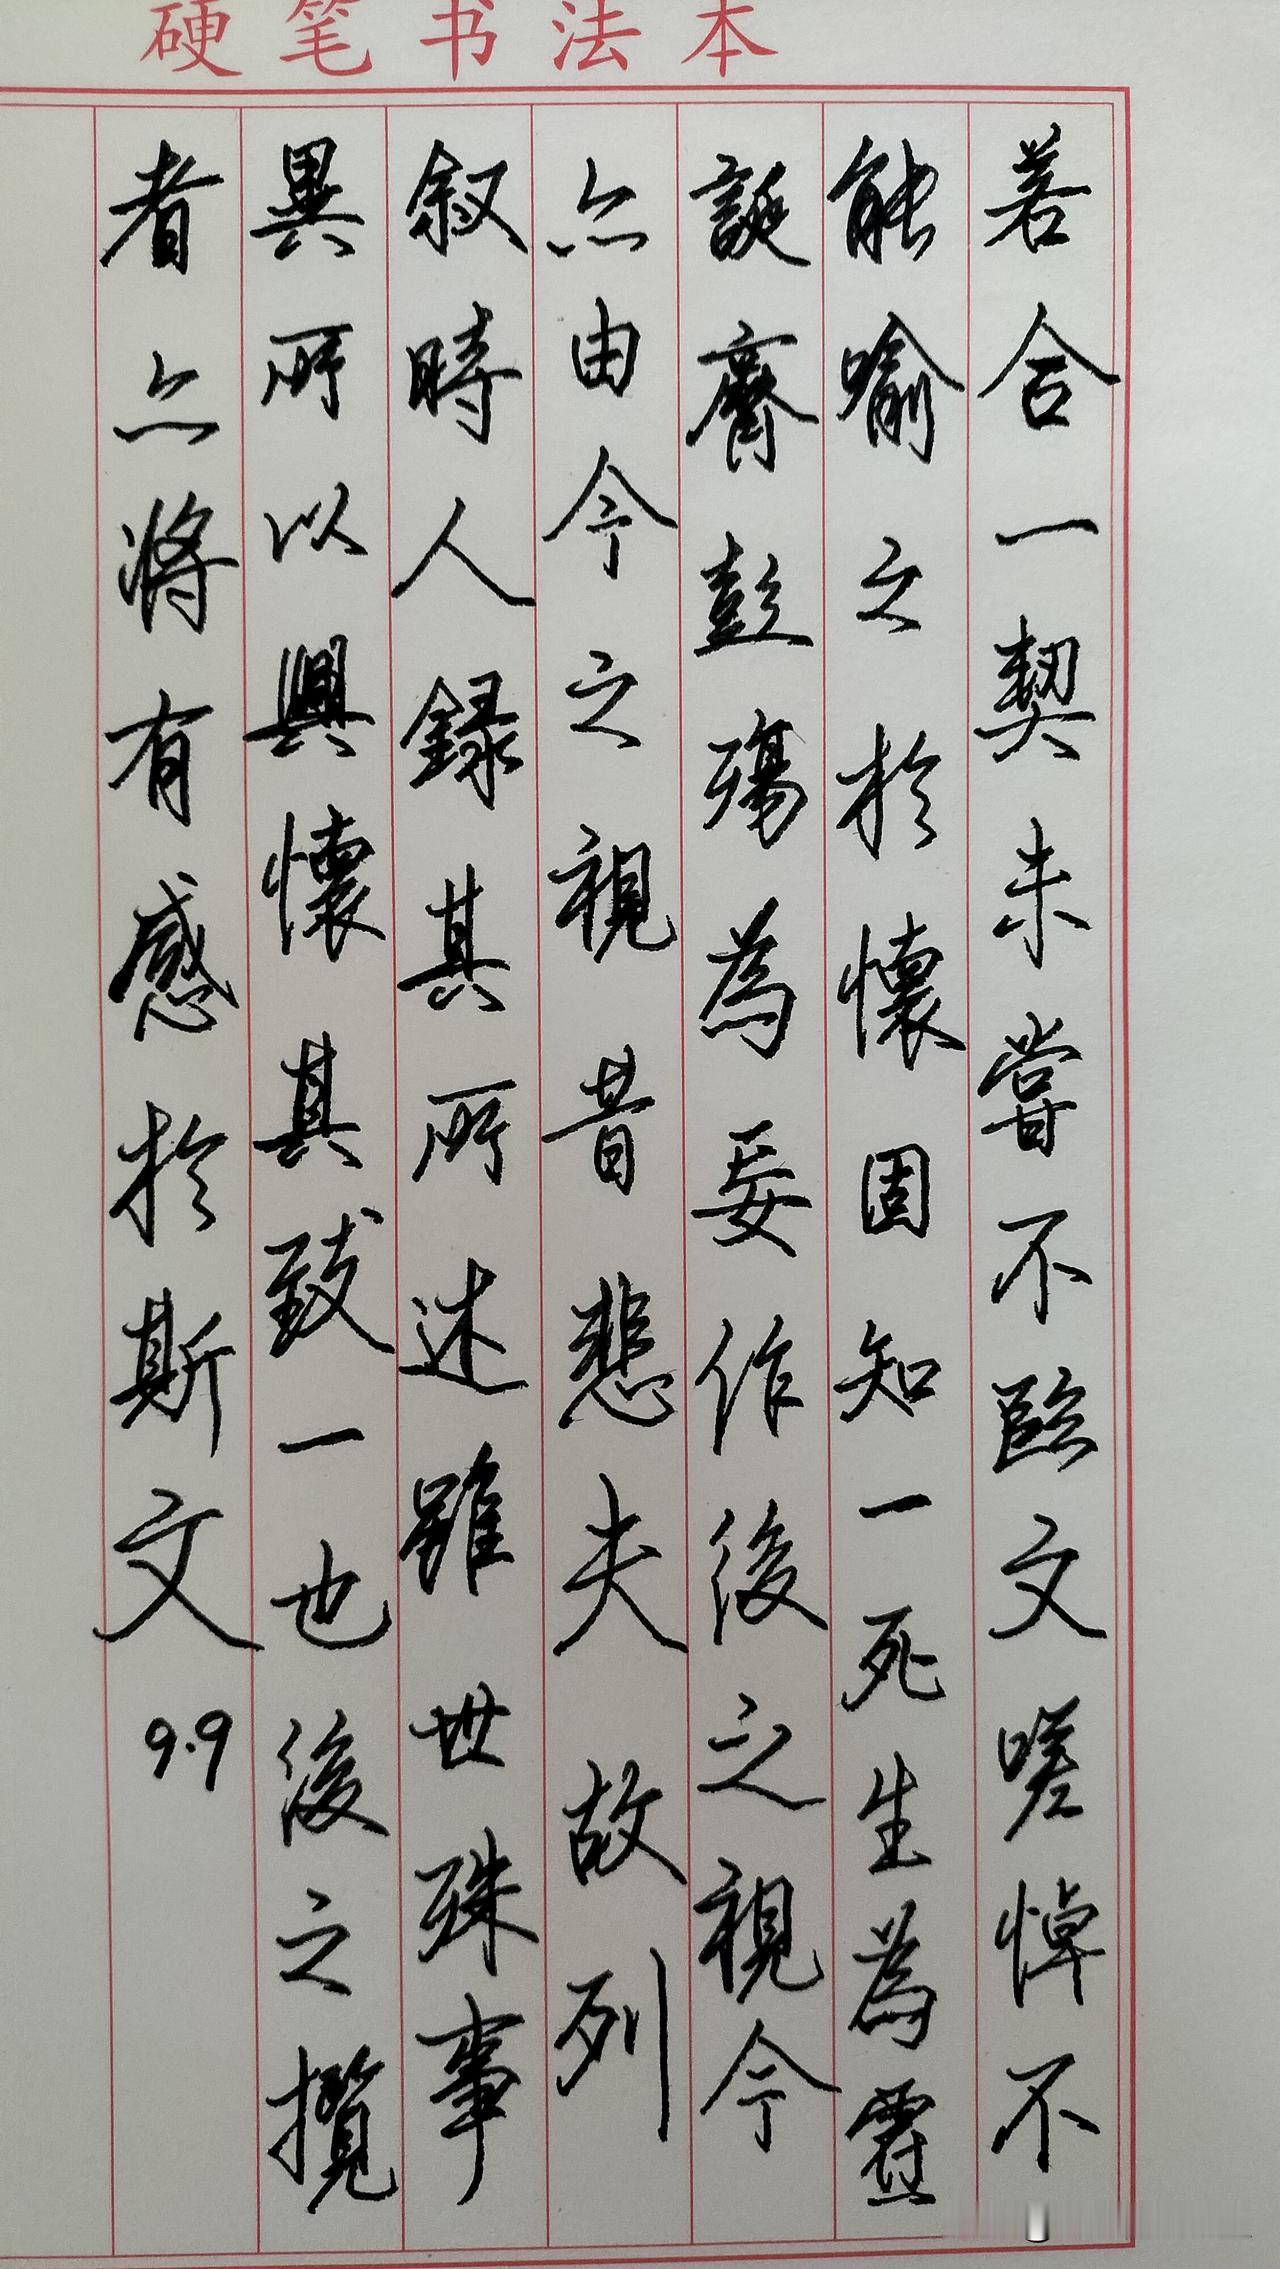 硬笔书法本
若合一契未嘗不臨文嗟悼不
能喻之於懷固知一死生為虛
誕齊彭殤為妄作後之視今
亦由今之視昔悲夫故列
叙時人録其所述雖世殊事
異所以興懷其致一也後之攬
者亦將有感於斯文 9.9